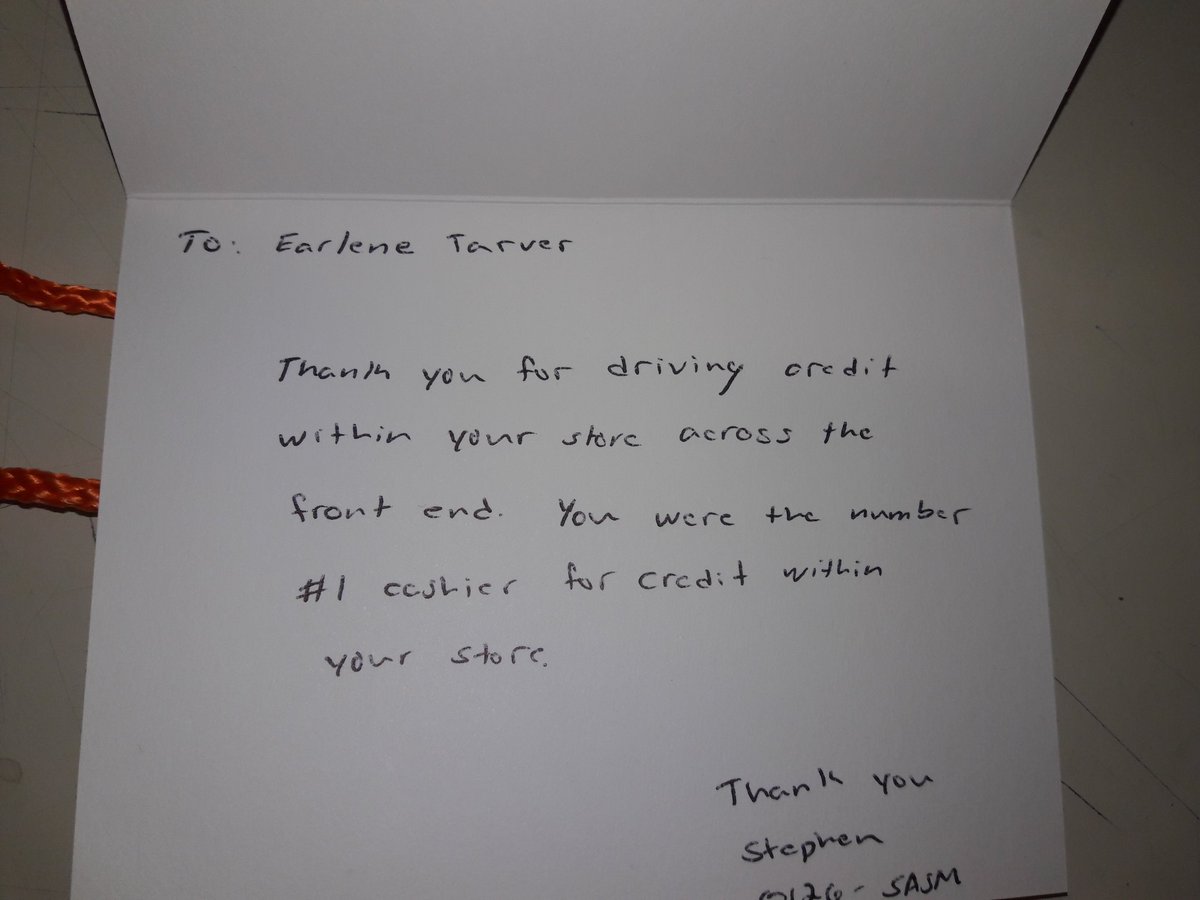 To: Earlene Tarver
Thank you for driving credit
within your store across the
front end. You were the number
#1 cashier for credit within
your store.
Thank you
Stephen
SASM